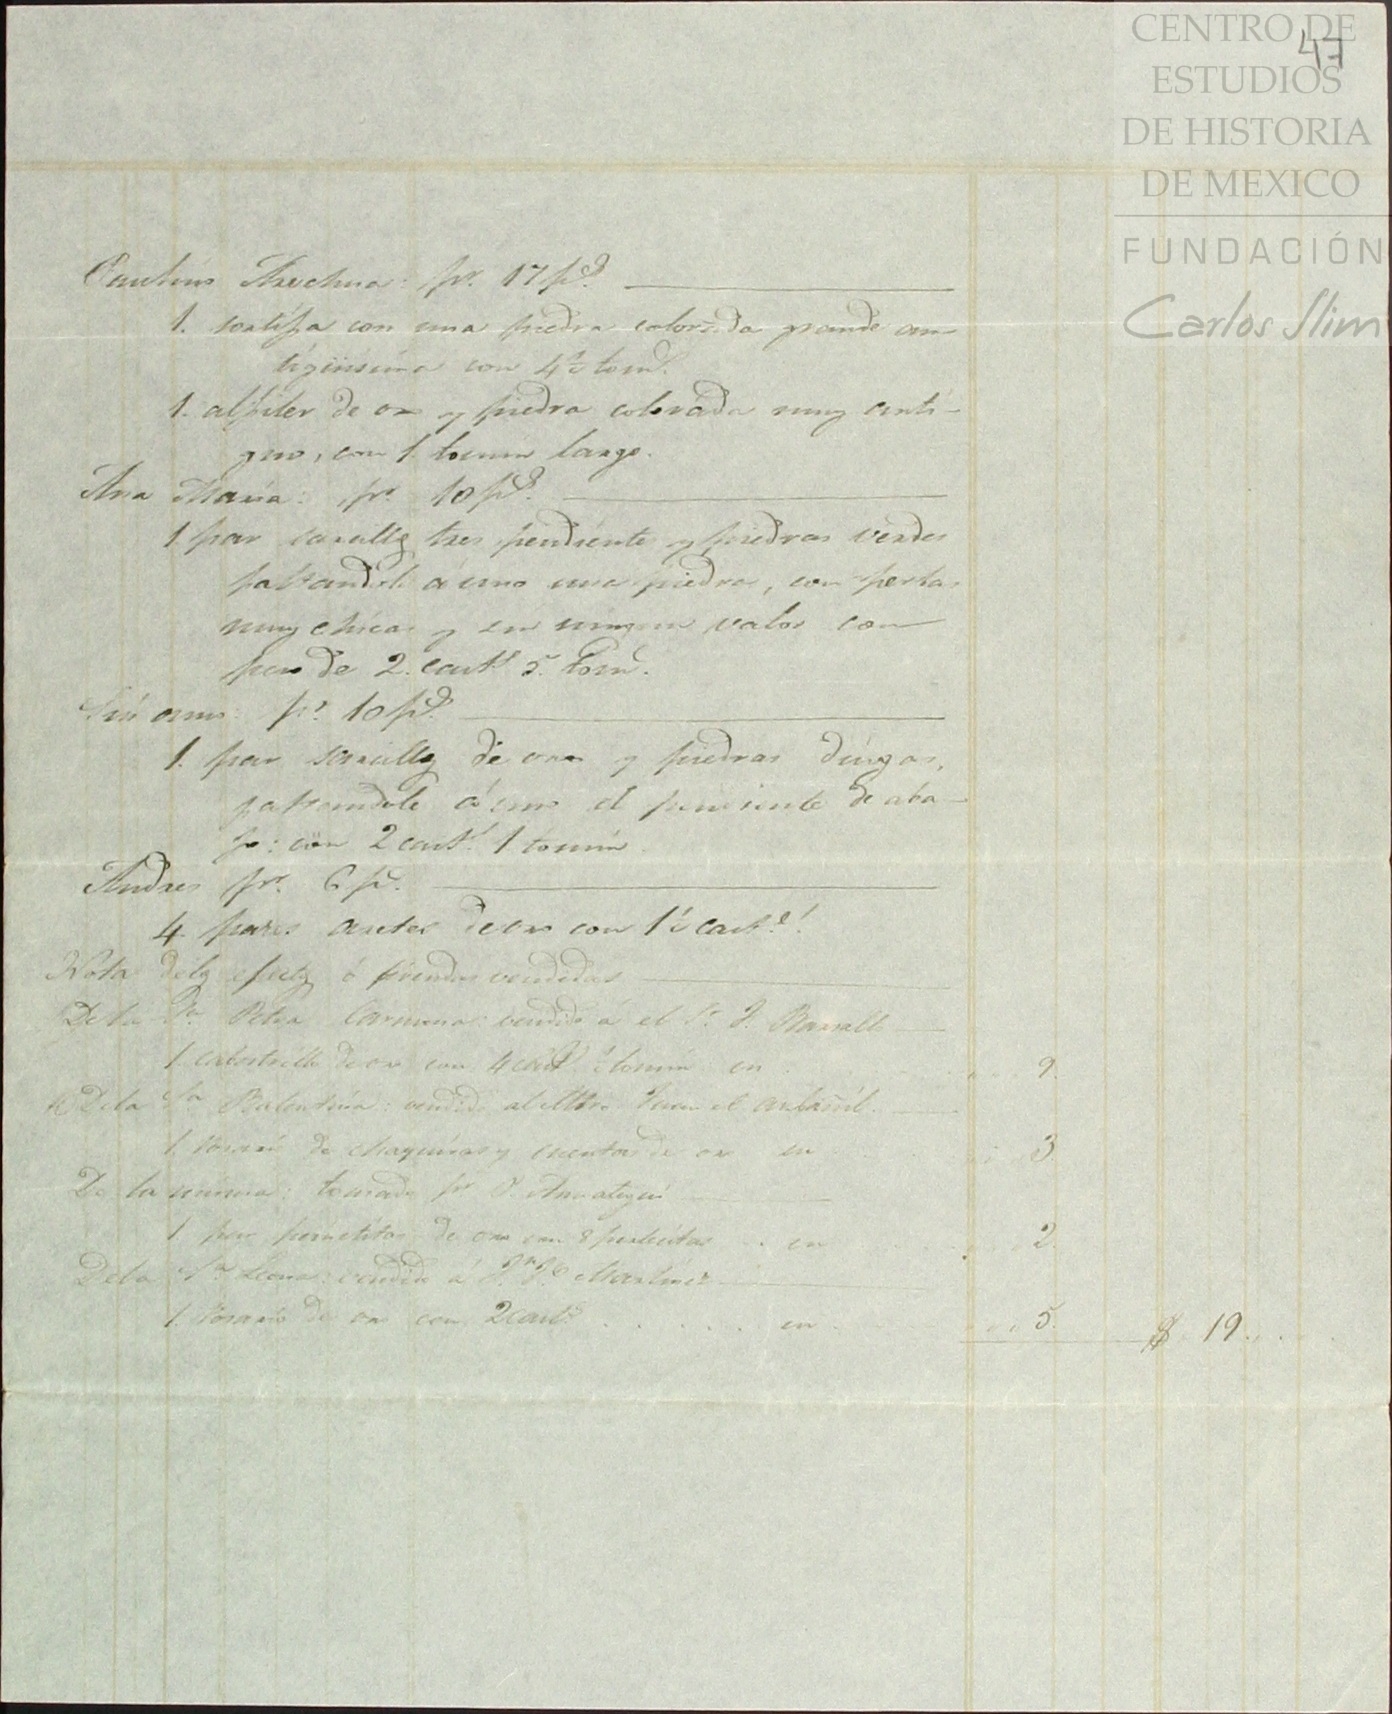 47
CENTRO DE
ESTUDIOS
DE HISTORIA
DE MEXICO
FUNDACIÓN
Carlos Slim
Paulino Arechua: pr. 17 ps.
1. sortija con una piedra colorada grande an-
tigüisima con 4½ tomˢ.
1. alfiler de oro y piedra colorada muy anti-
guo, con 1. tomin largo.
Ana Maria: pr. 10 ps.
1. par zarcillos tres pendiente y piedras verdes
faltandole á uno una piedra, con perlas
muy chicas y sin ningun valor con
peso de 2. castˢ 5. tomˢ.
Sin amo: pr. 10 ps.
1. par zarcillos de oro y piedras
faltandole á uno el pendiente de aba-
jo: con 2 castˢ. 1 tomin
Andres pr. 6 ps.
4 pares aretes de oro con 1½ castˢ.
Nota delos efectos ó prendas vendidas
De la Sa. Petra Carmona: vendido á el Sr. J.
1. cabestrillo de oro con 4 castˢ ½ tomin en 9.
De la Sa Balentina: vendido al Mtro Juan el Albañil.
1. rosario de chaquiras y cuentas de oro en 3.
De la misma: tomado pr
1 par de oro con 8 perlecitas en 2.
De la Sa Leona: vendido á Jn. Je. Martinez
1. rosario de oro con 2 castˢ en 5. $ 19.